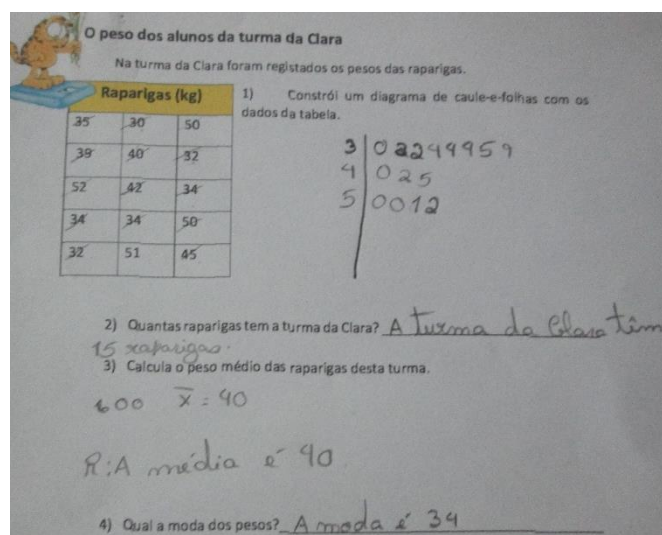 O peso dos alunos da turma da Clara
Na turma da Clara foram registados os pesos das raparigas.
Raparigas (kg)
35 30 50
39 40 32
52 42 34
34 34 50
32 51 45
1) Constrói um diagrama de caule-e-folhas com os
dados da tabela.
3 | 02244959
4 | 025
5 | 0012
2) Quantas raparigas tem a turma da Clara? A turma da Clara têm
15 raparigas.
3) Calcula o peso médio das raparigas desta turma.
600 x̄ = 40
R: A média é 40
4) Qual a moda dos pesos? A moda é 34